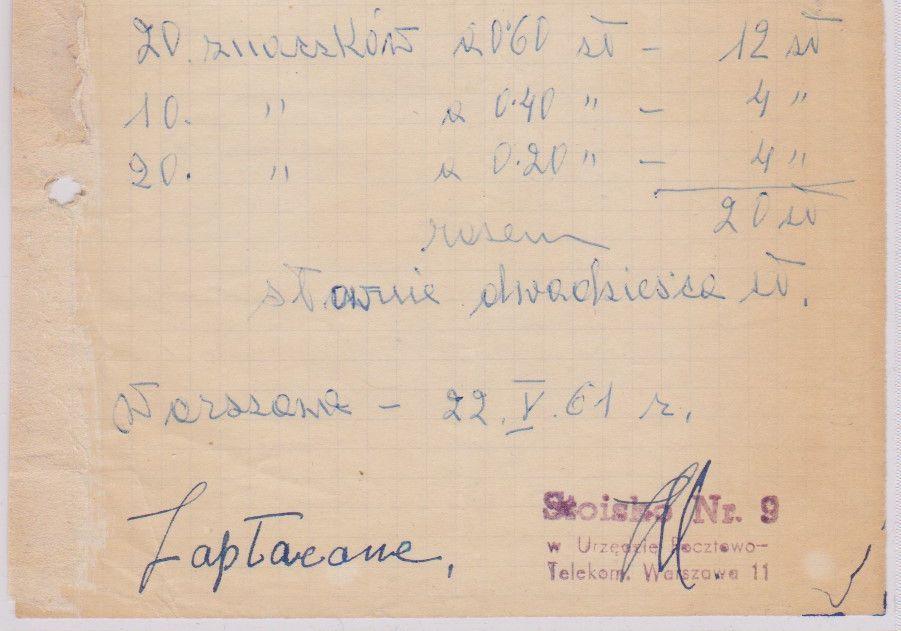 20. znaczków à 0·60 zł — 12 zł
10. " à 0·40 " — 4 "
20. " à 0·20 " — 4 "
20 zł
razem
słownie dwadzieścia zł.
Warszawa - 22.V.61 r.
Zapłacone,
Stoisko Nr. 9
w Urzędzie Pocztowo-
Telekom. Warszawa 11